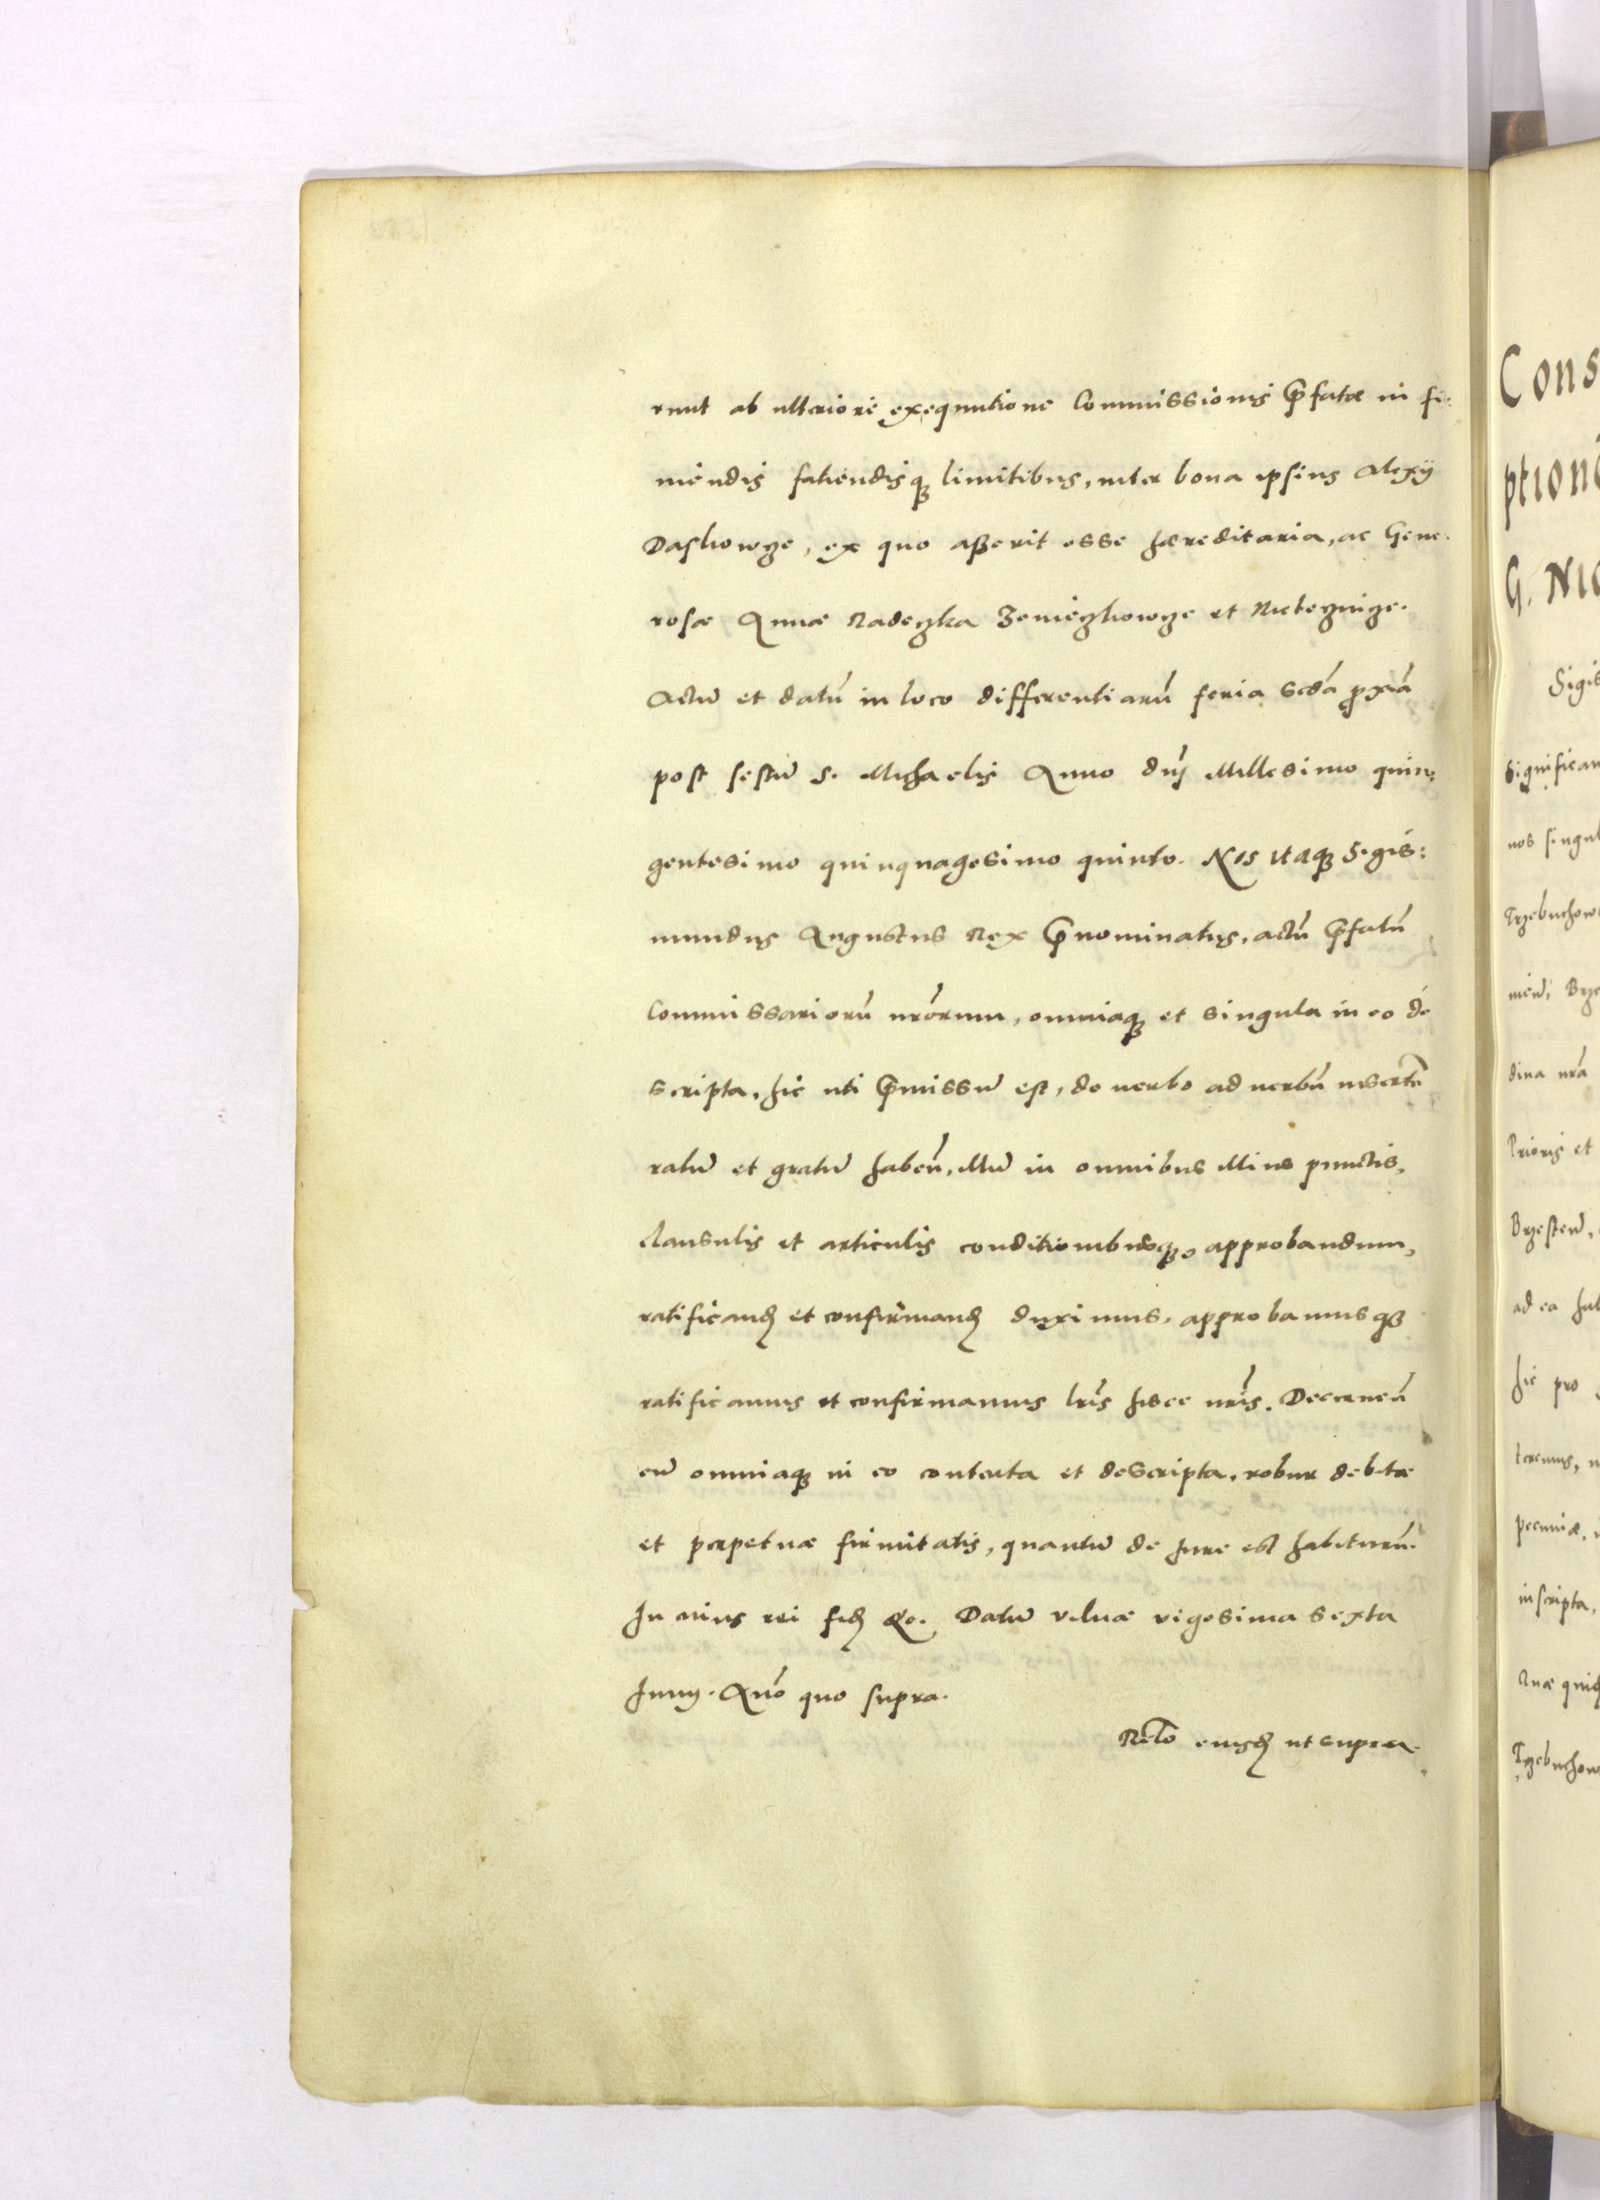 runt ab ulteriore exequutione Commissionis p̄fatæ in fi:
niendis fatiendisq; limitibus, inter bona ipsius Alexij
Daskowye, ex quo asserit esse hæreditaria, ac Gene:
rosæ Annæ Radeczka et
Actū et datū in loco differentiarū feria scda pxia
post festū S. Michaelis Anno dnj Millesimo quin:
gentesimo quinquagesimo quinto. Nos itaq; Sigis:
mundus Augustus Rex p̄nominatus, actū p̄fatū
Commissariorū nrorum, omniaq; et singula in eo de
scripta, hic uti p̄missū est, de uerbo ad uerbū insertū
ratū et gratū haben, illū in omnibus illius punctis,
clausulis et articulis conditionibusq; approbandum,
ratificand et confirmand duximus, approbamusq;
ratificamus et confirmamus lris hisce nris. Decernen
eū omniaq; in eo contenta et descripta, robur debitæ
et perpetuæ firmitatis, quantū de Jure est habiturū.
In cuius rei fid &c. Datū Vilnæ vigesima sexta
Junij. Ano quo supra.
Relo eiusd ut supra.
Cons
ptione
G. Nic
Sigis
Significam
nos singul
Trzebuchow
Brze
dina nra
Prioris et
Brzesten,
ad ea hab
hic pro
pecuniæ,
inscripta,
Quæ quid
Trzebuchow